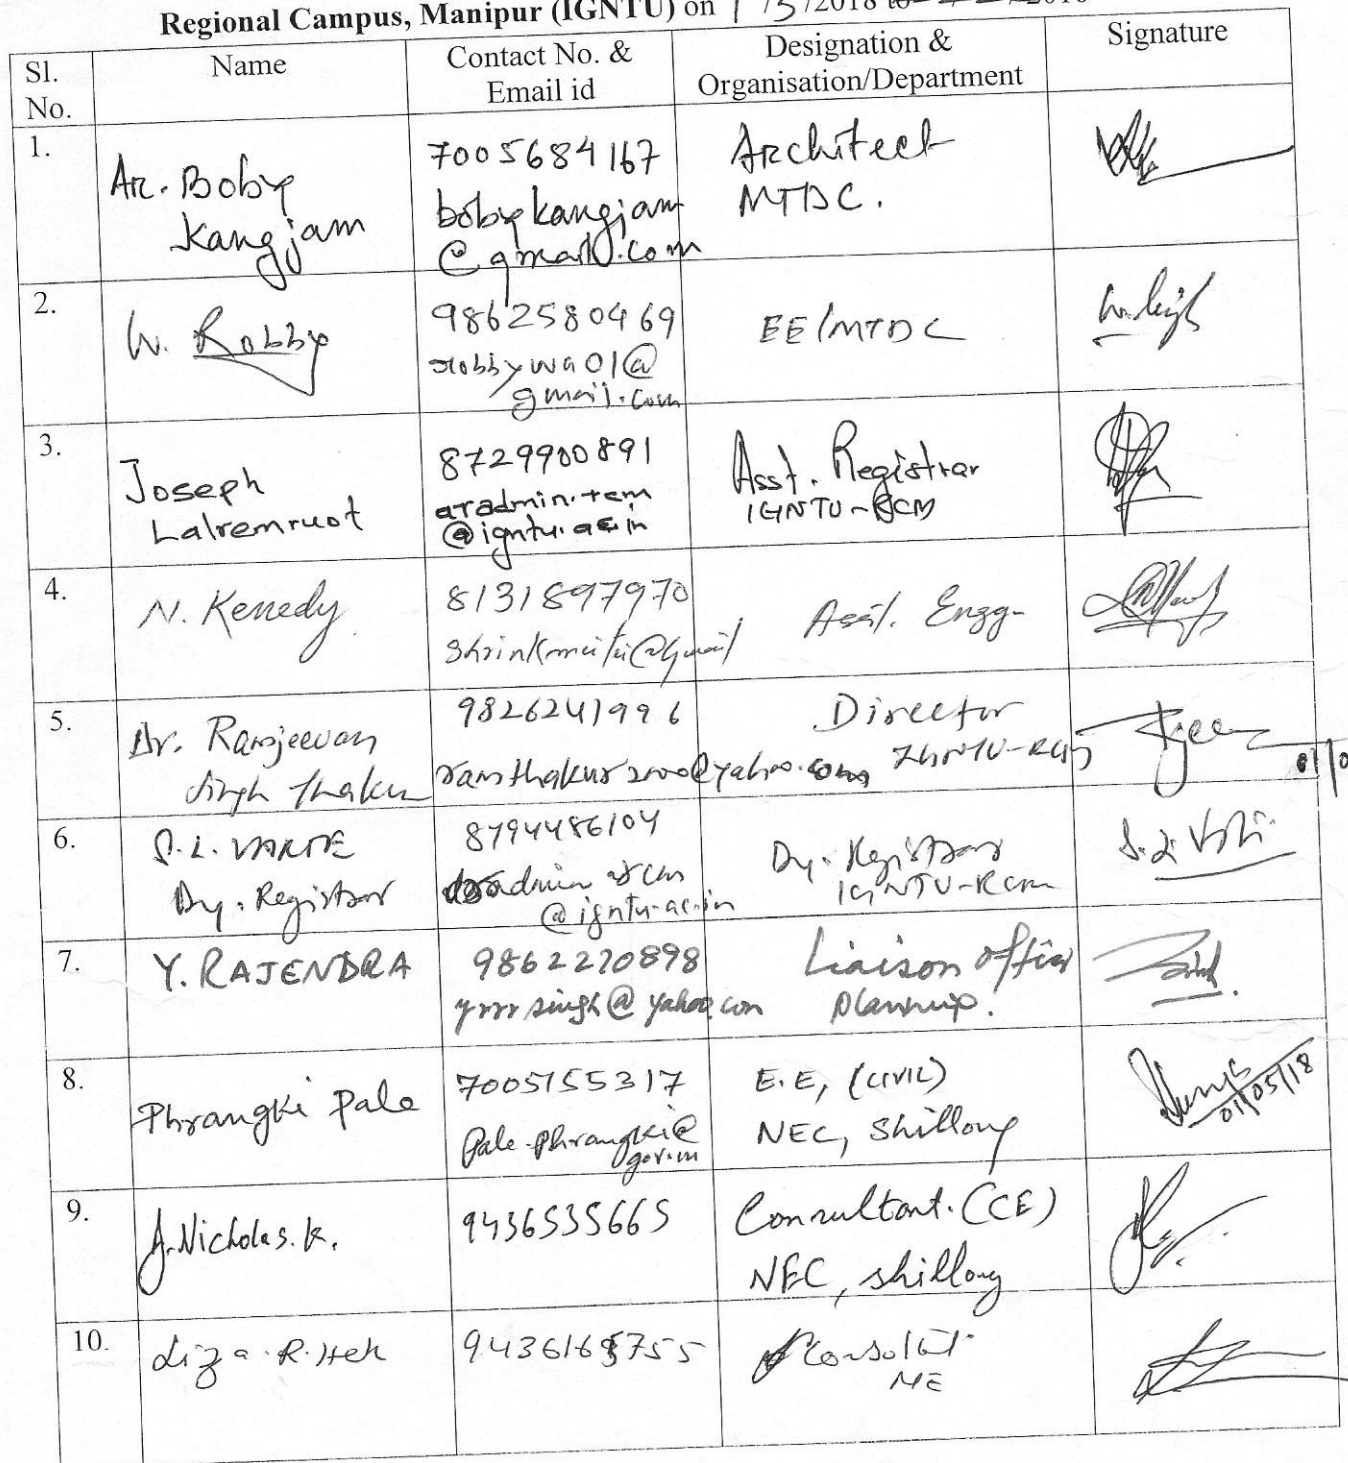 Regional Campus, Manipur (IGNTU) on 1/5/2018
Sl. No.
Name
Contact No. &
Email id
Designation &
Organisation/Department
Signature
1.
Ar. Boby
Kangjam
7005684167
bobykangjam
@gmail.com
Architect
MTDC.
2.
W. Robby
9862580469
robbywa01@
gmail.com
EE/MTDC
3.
Joseph
Lalremruot
8729900891
aradmin.rcm
@igntu.ac.in
Asst. Registrar
IGNTU-RCM
4.
N. Kenedy
8131897970
@gmail
Asst. Engg.
5.
Dr. Ramjeevan
Singh Thakur
9826241996
ramthakur2000@yahoo.com
Director
IGNTU-RCM
6.
S.L. VARTE
Dy. Registrar
8794486104
@igntu.ac.in
Dy. Registrar
IGNTU-RCM
7.
Y. RAJENDRA
9862270898
singh@yahoo.com
Liaison Officer
Planning.
8.
Phrangki Pale
7005155317
Pale.phrangki@
gov.in
E.E, (CIVIL)
NEC, Shillong
01/05/18
9.
J. Nicholas. K.
9436535665
Consultant. (CE)
NEC, Shillong
10.
Liza R.
ME